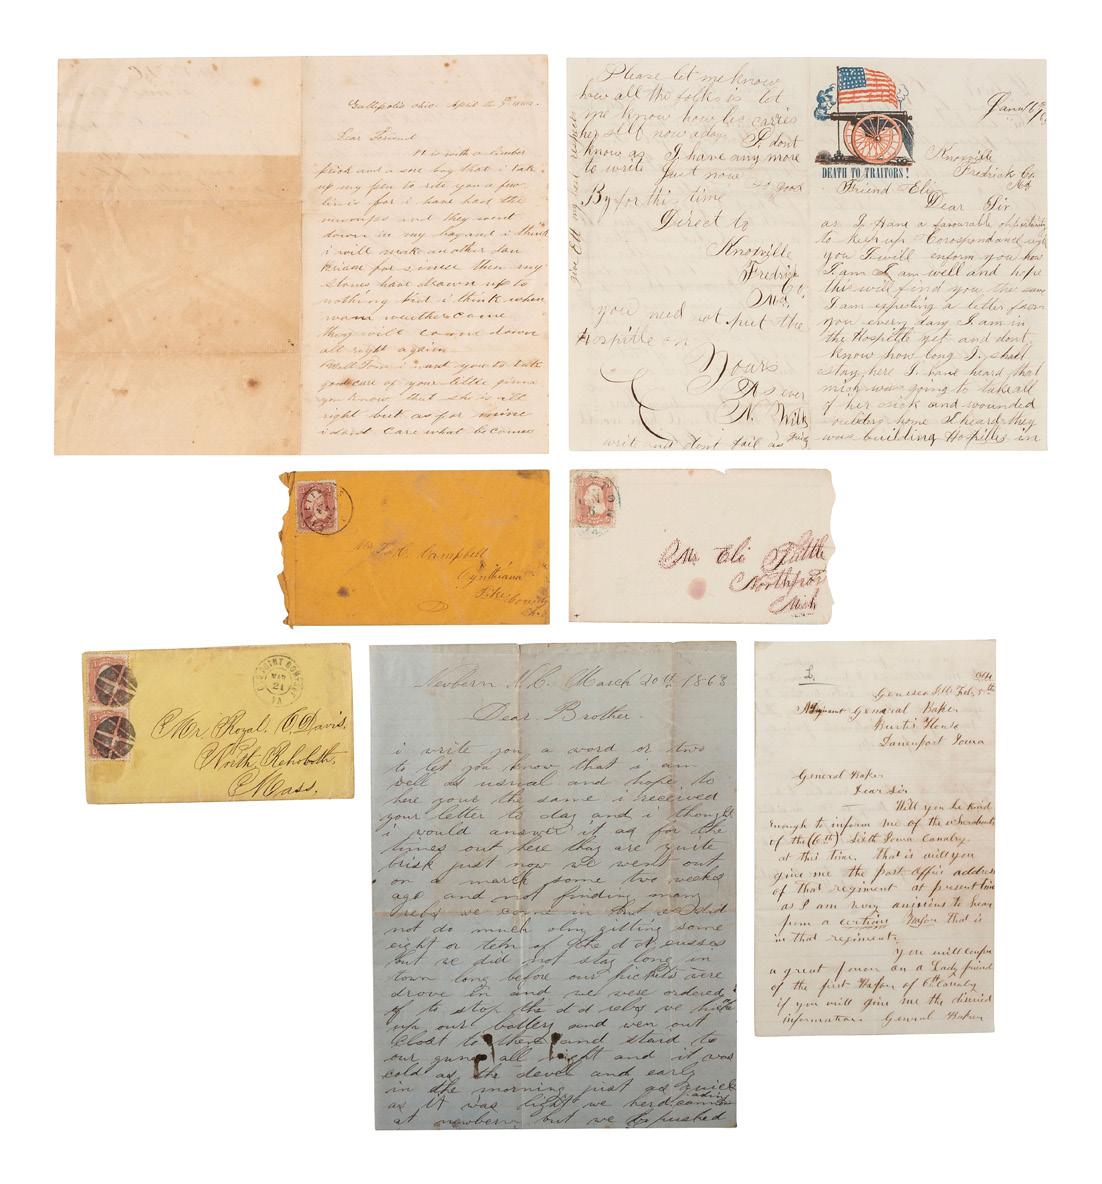 Gallipolis Ohio April the
Dear Friend
It is with a limber
prick and a sore bag that i take
up my pen to rite you a few
lines for i have had the
mumps and they went
down in my bag and i think
i will make another
for since then my
stones have drawn up to
nothing but i think when
warm weather come
they will come down
all right again
Well Tom i want you to take
good care of your little
you know that she is all
right but as for mine
i dont care what becomes
Please let me know
how all the folks is let
me know how she carries
her self now adays I dont
know as I have any more
to write just now
By for this time
Direct to
Knoxville
Fredrick
Co
Md
you need not put the
Hospittle on
Yours
As ever
N. Wills
writ and dont fail
give Ell my best respect
DEATH TO TRAITORS!
Knoxville
Fredrick Co.
Md
Friend Eli
Dear Sir
as I have a favourable opportunity
to keep up Corospondance with
you I will enform you how
I am I am well and hope
this will find you the same
I am expecting a letter from
you every day I am in
the Hospittle yet and dont
know how long I shall
stay here I have heard that
mich was going to take all
of her sick and wounded
soulders home I heard they
was building Hospitles in
Mr T. C. Campbell
Cynthiana
Pike County
Mr Eli Tuttle
Northport
Mich
OLD POINT COMFORT
MAR
21
VA
Mr. Royal C. Davis.
North Rehoboth,
Mass.
Newbern N.C. March 20th 1863
Dear Brother.
i write you a word or two
to let you know that i am
well as usual and hope to
here your the same i received
your letter to day and i thought
i would answer it as for the
times out here thay are quite
brisk just now we went out
on a march some two weeks
ago and not finding many
rebs we come in but did
not do much olny gitting some
eight or tehn of the d d cusses
but we did not stay long in
town long before our pickets were
drove in and we were ordered
of to stop the d d rebs we
up our battery and wen out
Closst to them and stard to
our guns all night and it was
cold as the devel and early
in the morning just as quick
as it was light we herd
at newbern but we
L.
Geneseo Ills Feb. 5th
Adjutant General Baker
Burtis House
Davenport Iowa
General Baker
Dear Sir
Will you be kind
enough to inform me of the wherabouts
of the (6th) Sixth Iowa Cavalry
at this time. that is will you
give me the Post Office address
of that regiment at present time
as I am very anxious to hear
from a certain Major that is
in that regiment.
You will confer
a great favor on a Lady friend
of the first Major of 6th Cavalry
if you will give me the desired
information General Baker